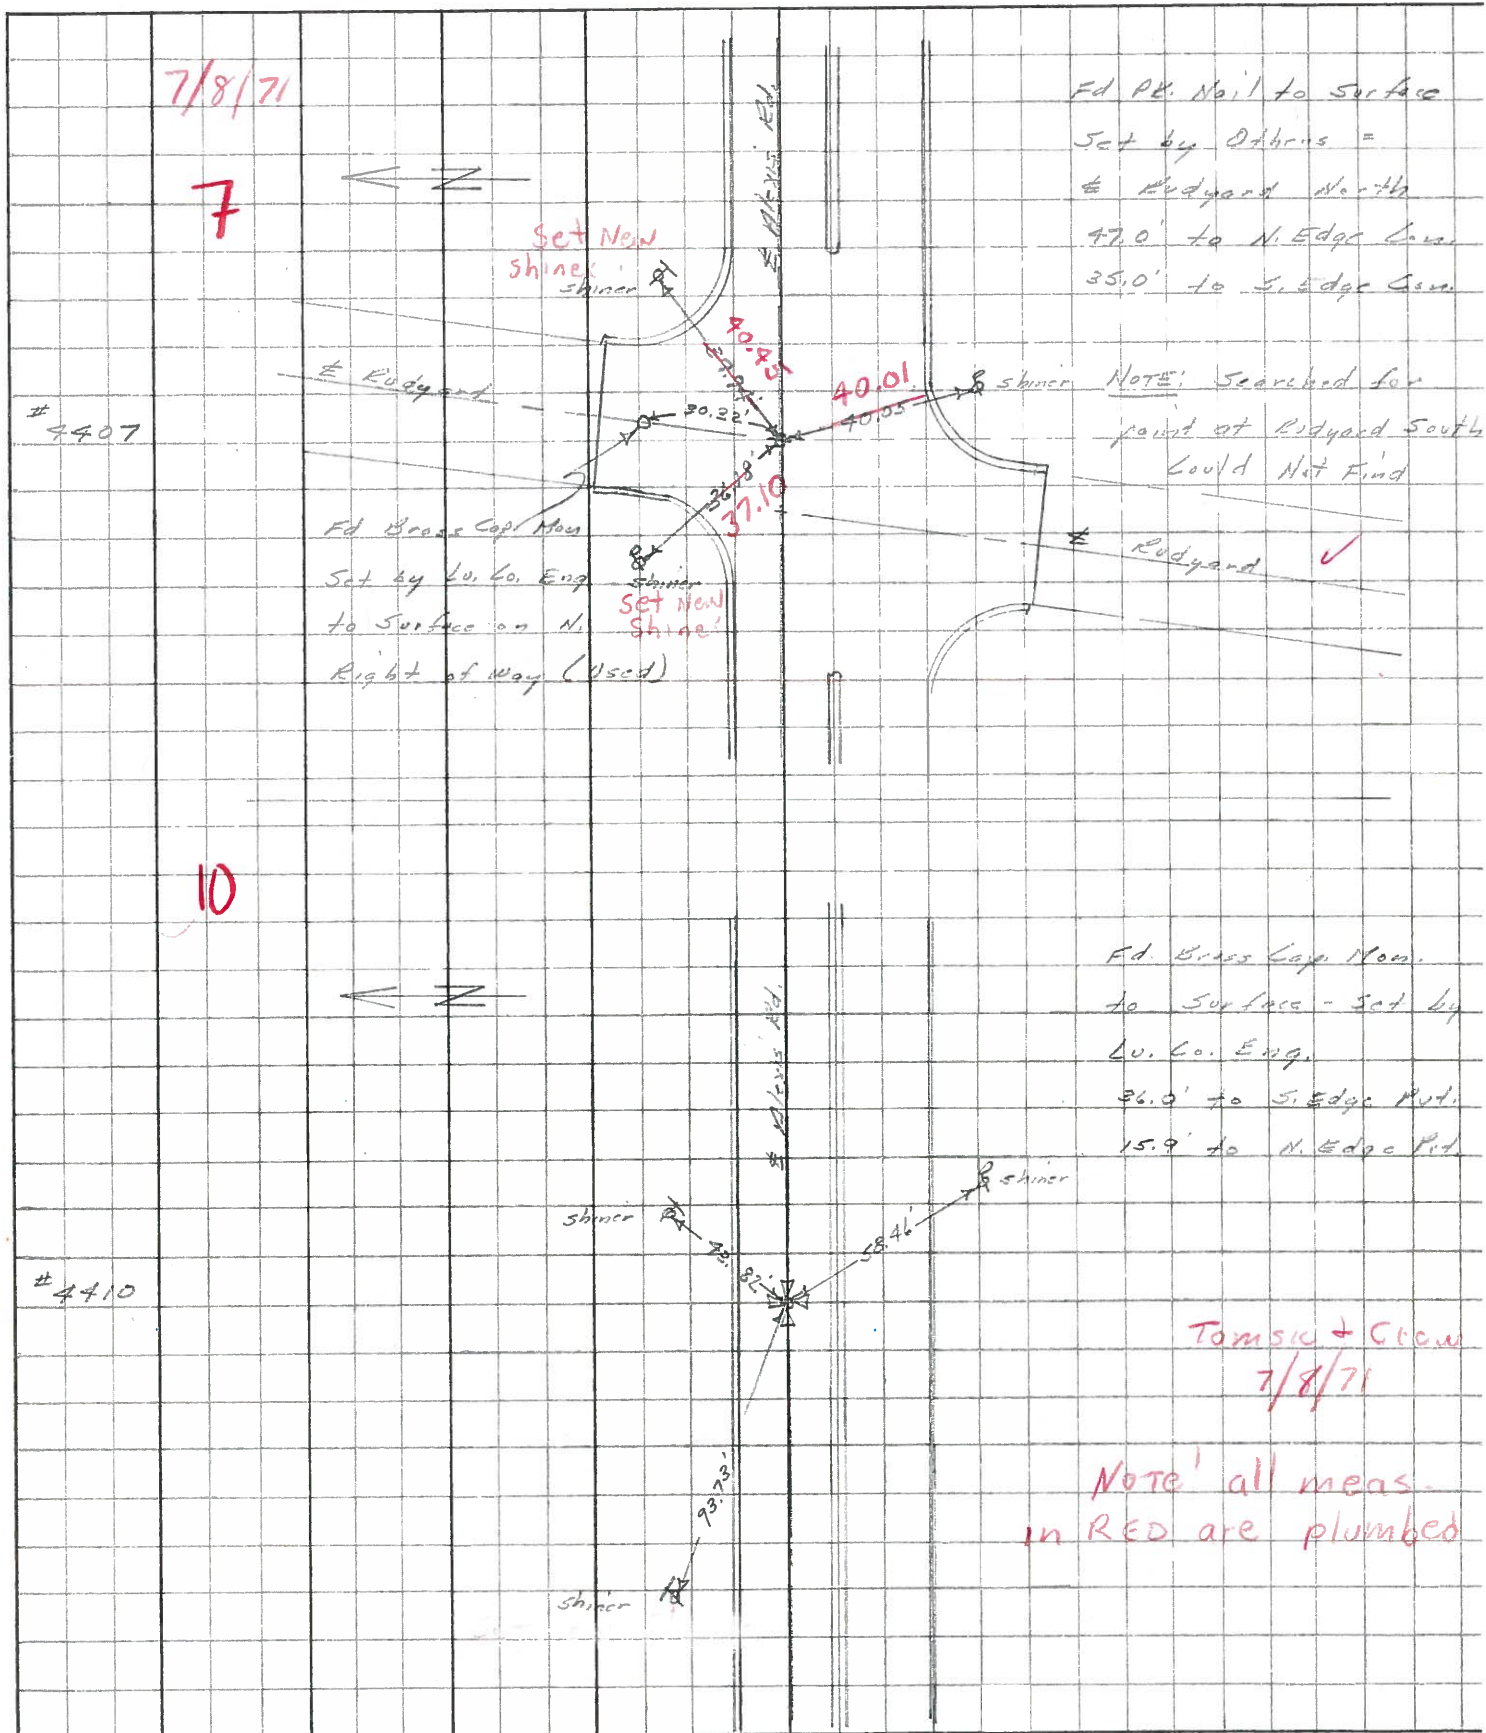 7/8/71
7
N
℄ Alexis Rd.
Fd P.K. Nail to Surface
Set by Others =
℄ Rudyard North
47.0' to N. Edge Con.
35.0' to S. Edge Con.
Set New
shiner
shiner
40.45
40.01
40.05
shiner
NOTE: Searched for
point at Rudyard South
Could Not Find
℄ Rudyard
30.22'
#
4407
36.18'
37.10
Fd Brass Cap. Mon
Set by Lu. Co. Eng
to Surface on N.
Right of Way (Used)
shiner
Set New
Shiner
℄ Rudyard
10
N
℄ Alexis Rd.
Fd. Brass Cap. Mon.
to Surface - Set by
Lu. Co. Eng.
36.0' to S. Edge Pvt.
15.9' to N. Edge Pvt.
shiner
shiner
82'
58.46'
# 4410
93.73'
shiner
& Crew
7/8/71
NOTE! all meas.
in RED are plumbed